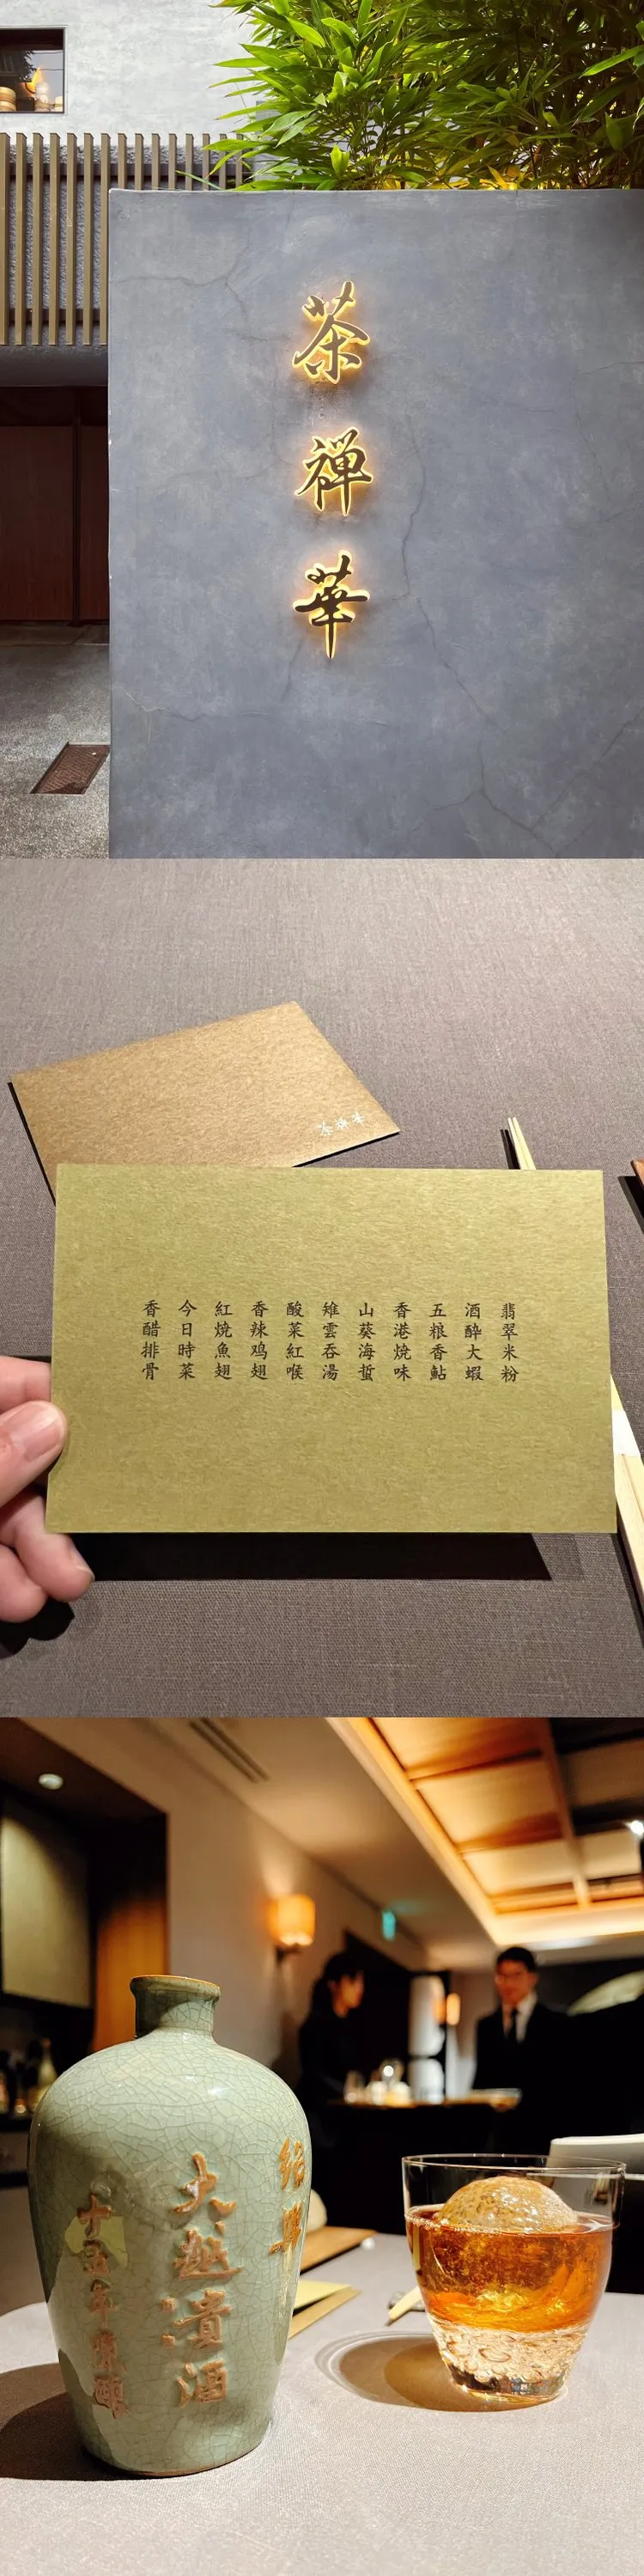 茶禅華
茶禅華
翡翠米粉
酒醉大蝦
五粮香鮎
香港焼味
山葵海蜇
雉雲吞湯
酸菜紅喉
香辣鸡翅
紅焼魚翅
今日時菜
香醋排骨
紹興
大越貴酒
十五年陳釀